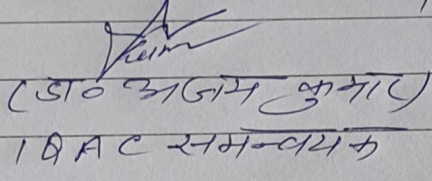 (डा० अजय कुमार)
IQAC समन्वयक